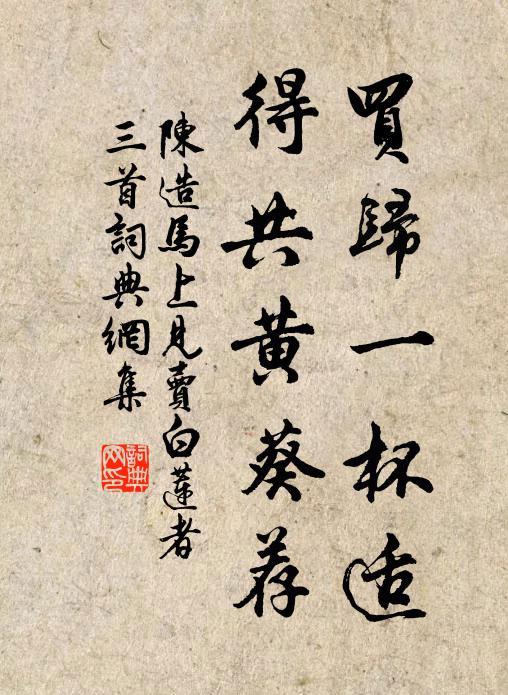 買歸一杯适
得共黃葵荐
陳造馬上見賣白蓮者
三首詞典網集
詞典网印